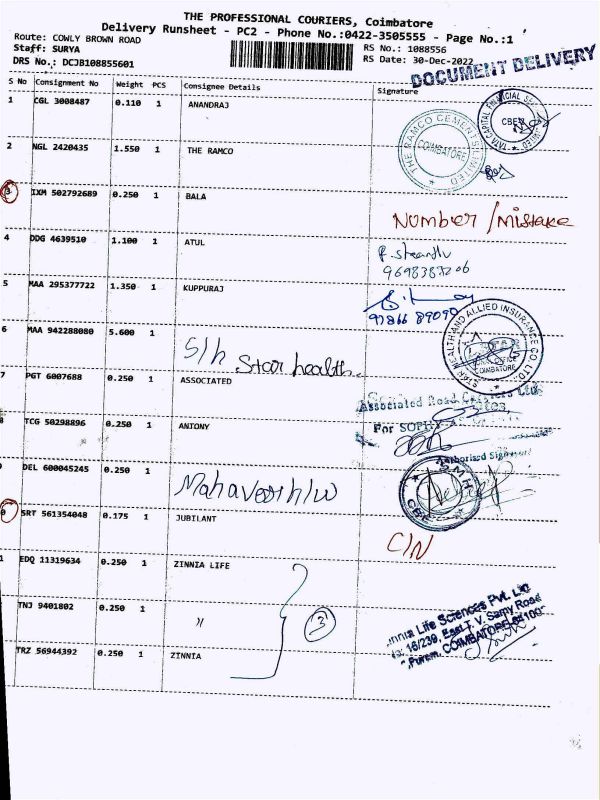 THE PROFESSIONAL COURIERS, Coimbatore
Delivery Runsheet - PC2 - Phone No.:0422-3505555 - Page No.:1
Route: COWLY BROWN ROAD
Staff: SURYA
DRS No.: DCJB108855601
RS No.: 1088556
RS Date: 30-Dec-2022
DOCUMENT DELIVERY
S No Consignment No Weight PCS Consignee Details Signature
1 CGL 3008487 0.110 1 ANANDRAJ
TATA CAPITAL FINANCIAL CBE
2 NGL 2420435 1.550 1 THE RAMCO
THE RAMCO CEMENTS LIMITED COIMBATORE
3 IXM 502792689 0.250 1 BALA
Number / Mistake
4 DDG 4639510 1.100 1 ATUL
9698387206
5 MAA 295377722 1.350 1 KUPPURAJ
97866 89090
6 MAA 942288080 5.600 1 S/h Star health
STAR HEALTH AND ALLIED INSURANCE CO LTD. COIMBATORE
7 PGT 6007688 0.250 1 ASSOCIATED
Associated Road Carriers Ltd
TCG 50298896 0.250 1 ANTONY
For SOPHY
Authorised Signatory
DEL 600045245 0.250 1 Mahaveer h/w
CBE
0 SRT 561354048 0.175 1 JUBILANT
C/N
1 EDQ 11319634 0.250 1 ZINNIA LIFE
TNJ 9401802 0.250 1 "
3
TRZ 56944392 0.250 1 ZINNIA
nnia Life Sciences Pvt. Ltd
16/239, East T. V. Samy Road
Puram, COIMBATORE